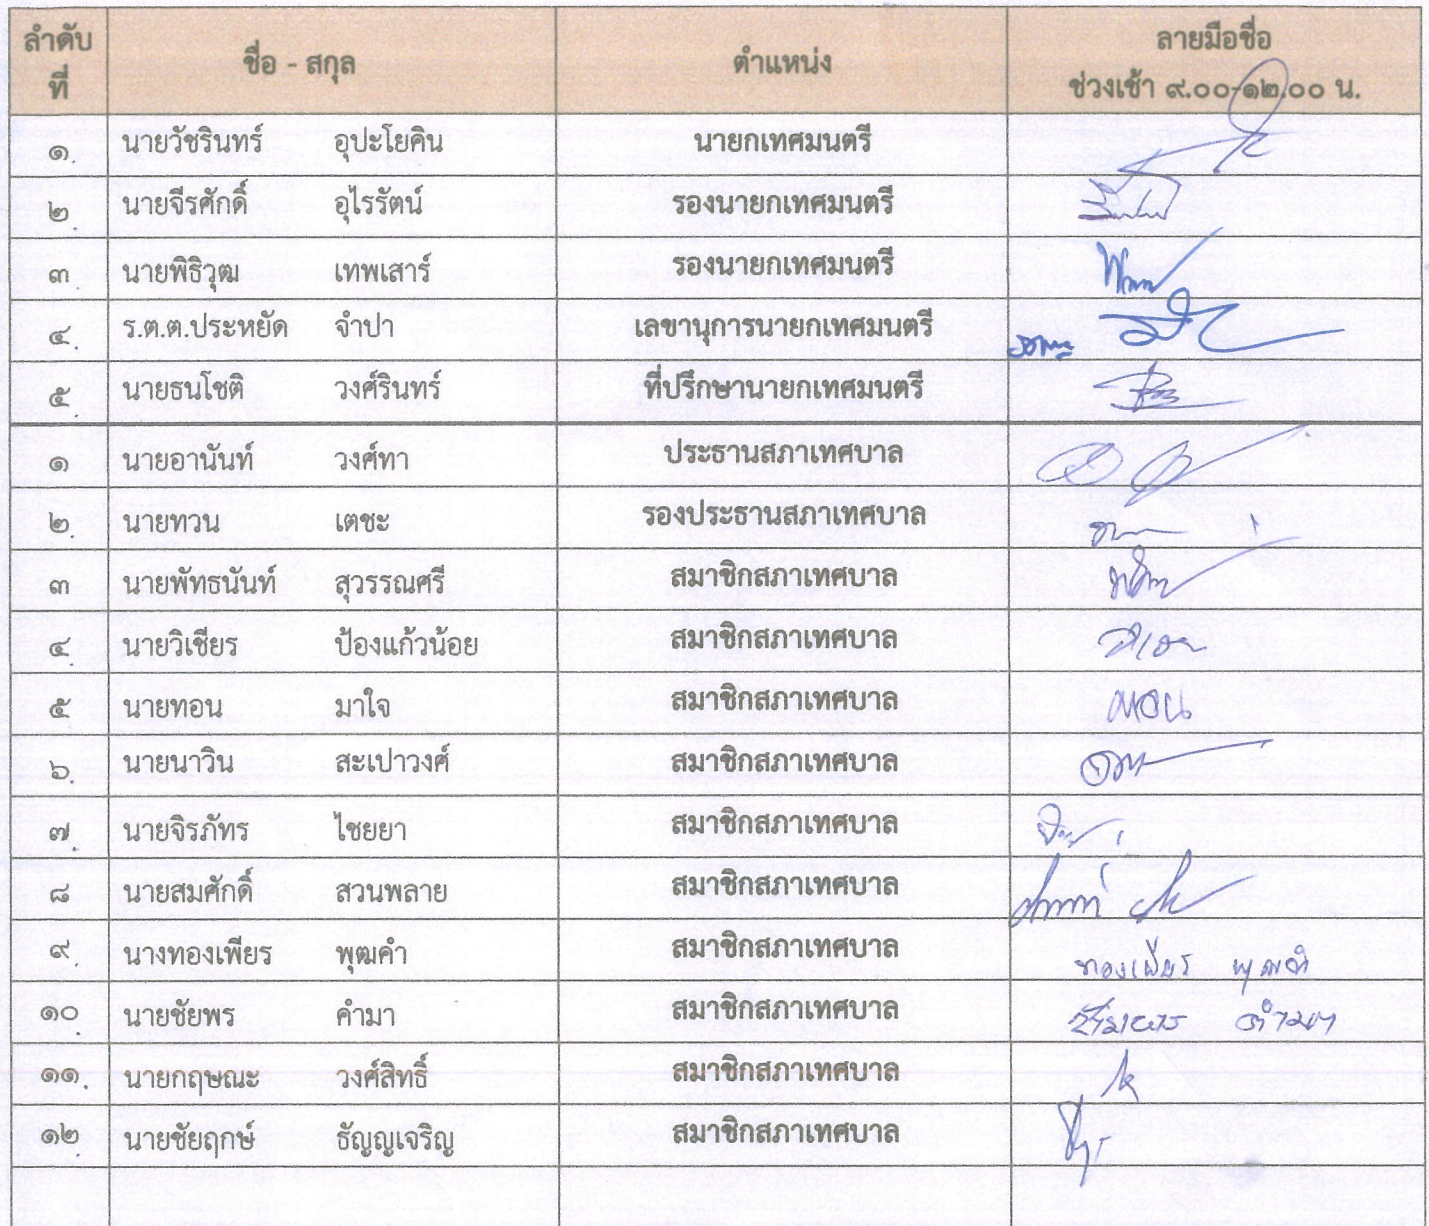 ลำดับที่ ชื่อ - สกุล ตำแหน่ง ลายมือชื่อ
ช่วงเช้า ๙.๐๐-๑๒.๐๐ น.
๑. นายวัชรินทร์ อุปะโยคิน นายกเทศมนตรี
๒. นายจีรศักดิ์ อุไรรัตน์ รองนายกเทศมนตรี
๓ นายพิธิวุฒ เทพเสาร์ รองนายกเทศมนตรี
๔. ร.ต.ต.ประหยัด จำปา เลขานุการนายกเทศมนตรี
๕. นายธนโชติ วงศ์รินทร์ ที่ปรึกษานายกเทศมนตรี
๑ นายอานันท์ วงศ์ทา ประธานสภาเทศบาล
๒. นายทวน เตชะ รองประธานสภาเทศบาล
๓ นายพัทธนันท์ สุวรรณศรี สมาชิกสภาเทศบาล
๔ นายวิเชียร ป้องแก้วน้อย สมาชิกสภาเทศบาล
๕ นายทอน มาใจ สมาชิกสภาเทศบาล ทอน
๖. นายนาวิน สะเปาวงศ์ สมาชิกสภาเทศบาล
๗. นายจิรภัทร ไชยยา สมาชิกสภาเทศบาล
๘ นายสมศักดิ์ สวนพลาย สมาชิกสภาเทศบาล
๙. นางทองเพียร พุฒคำ สมาชิกสภาเทศบาล ทองเพียร พุฒคำ
๑๐ นายชัยพร คำมา สมาชิกสภาเทศบาล คำมา
๑๑. นายกฤษณะ วงศ์สิทธิ์ สมาชิกสภาเทศบาล
๑๒. นายชัยฤกษ์ ธัญญเจริญ สมาชิกสภาเทศบาล